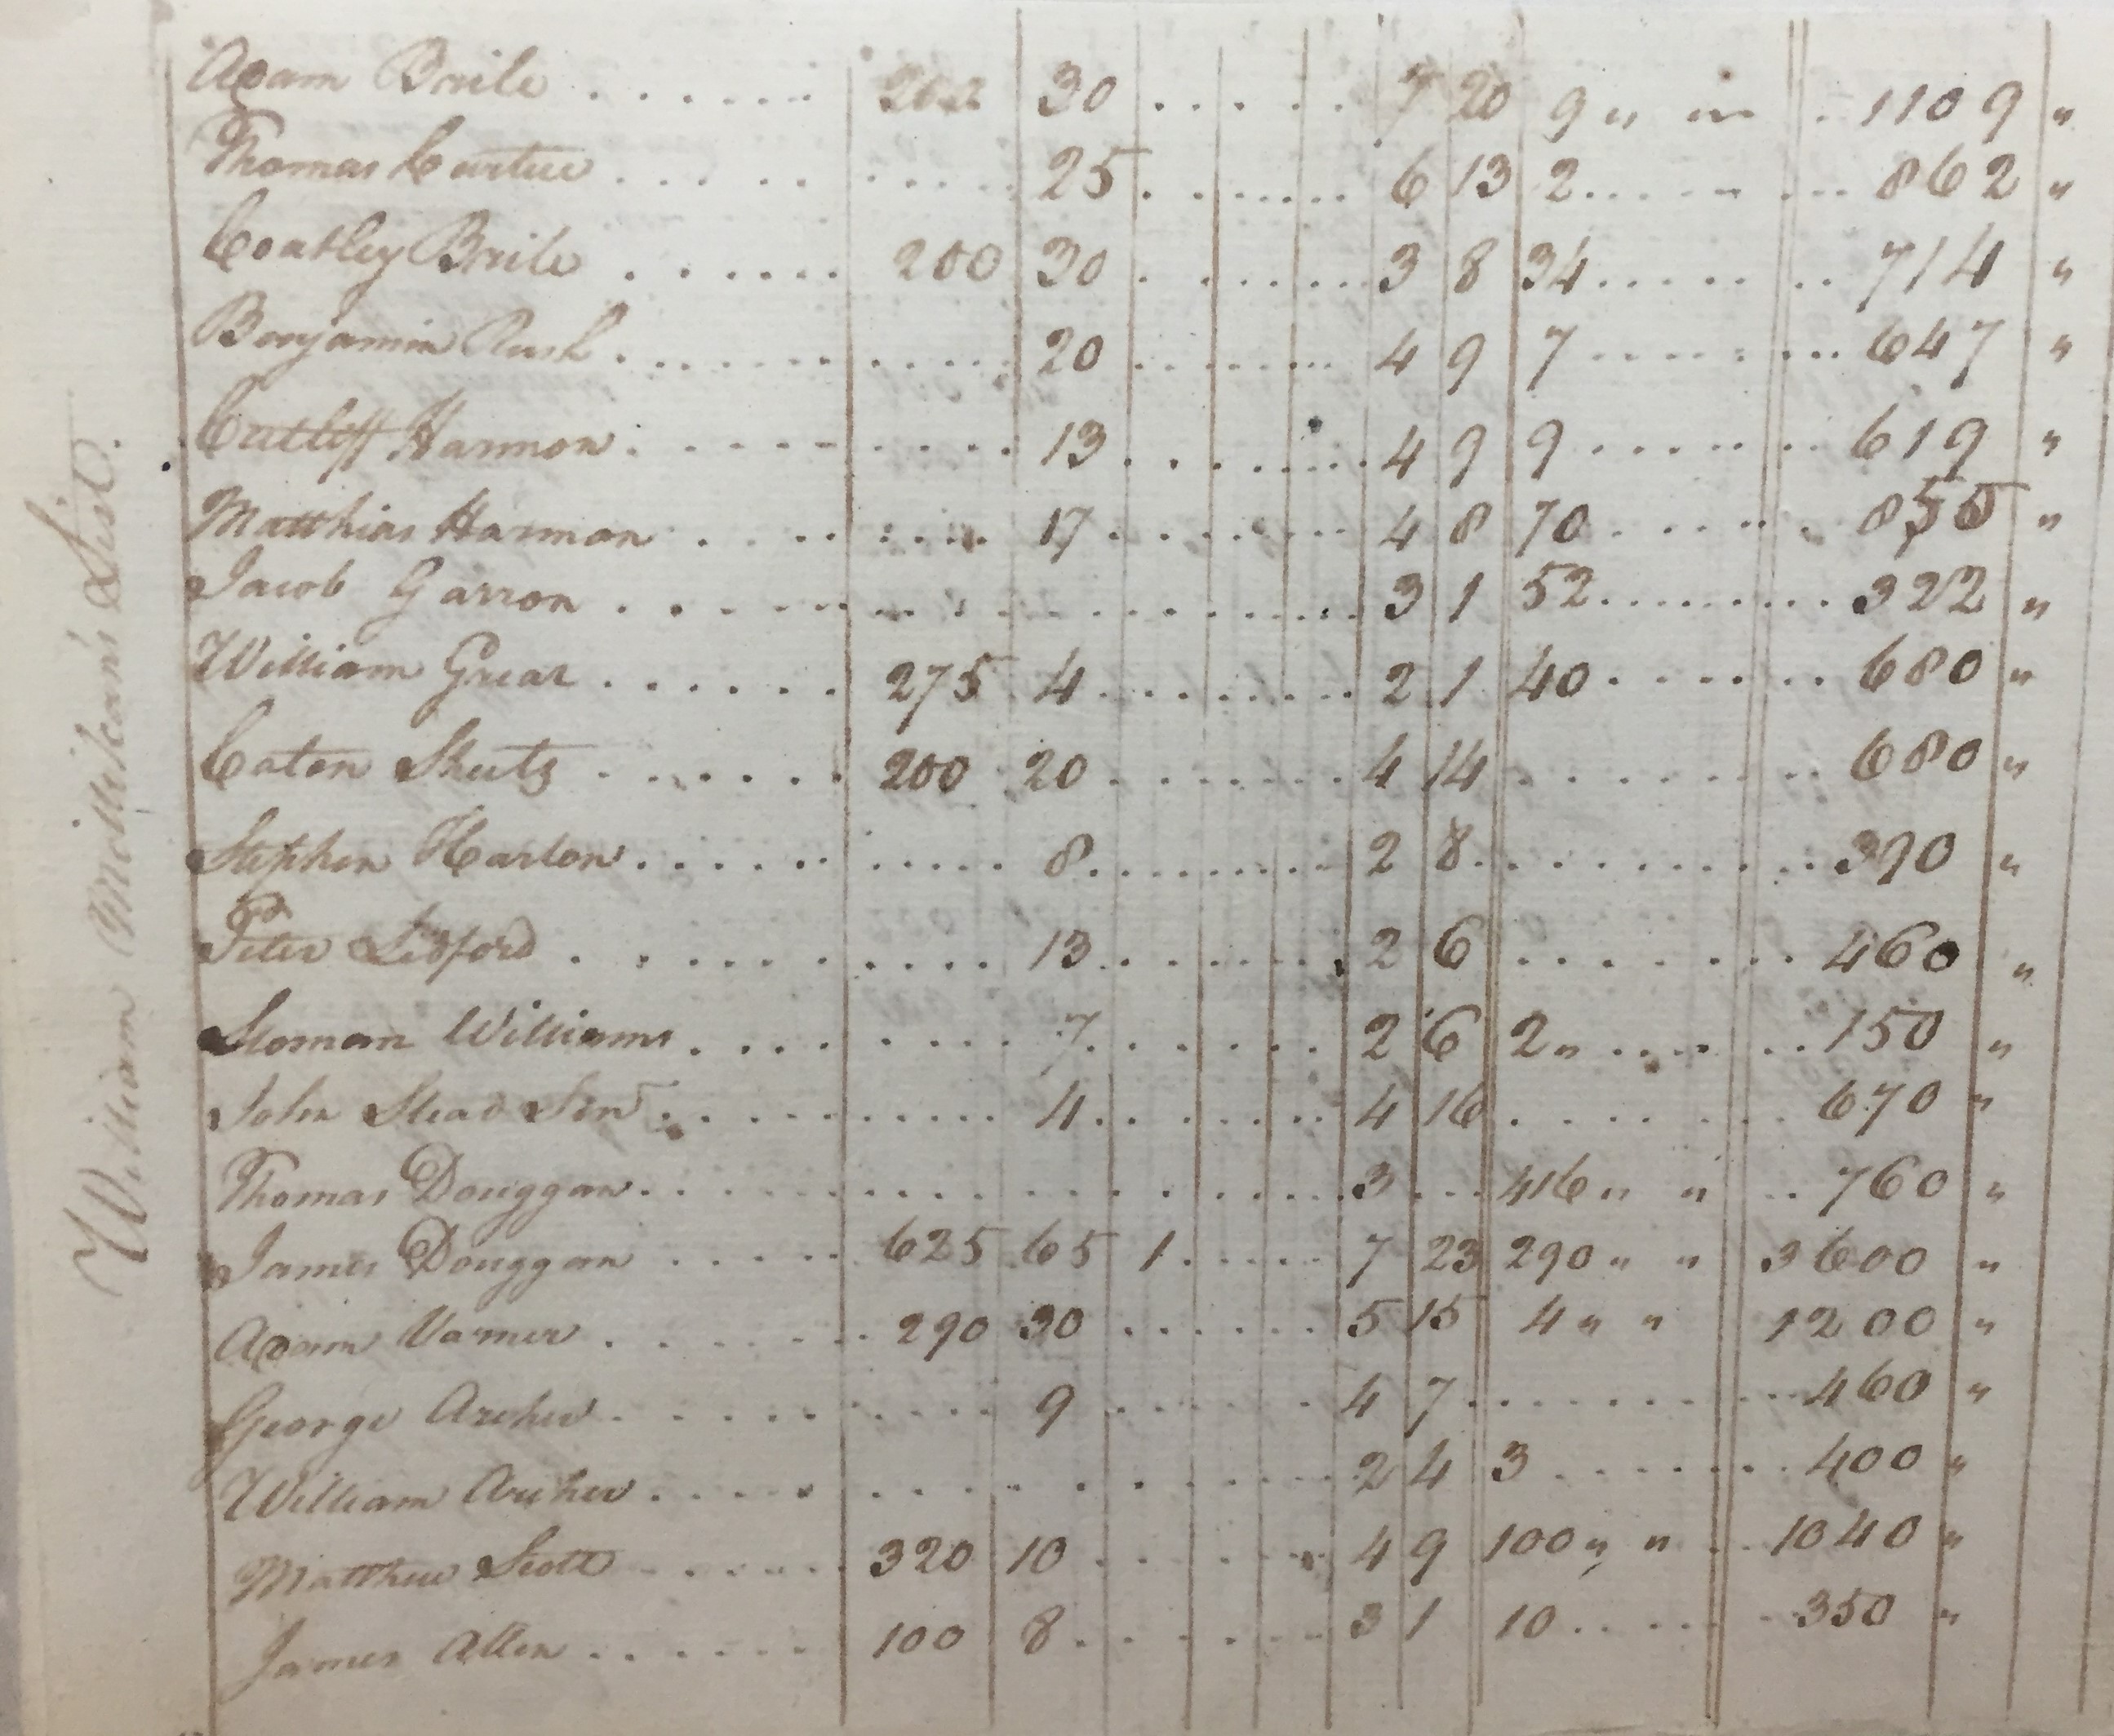 William Millikan's List.
Adam Brile . . . . . . 202 30 . . . . . 7 20 9 " " . 1109 "
Thomas Curtice . . . . . . 25 . . . . . 6 13 2 . . . . . 862 "
Coatley Brile . . . . . . 200 30 . . . . . 3 8 34 . . . . . 714 "
Benjamin Rush . . . . . . 20 . . . . . 4 9 7 . . . . . 647 "
Cutliff Harmon . . . . . . 13 . . . . . 4 9 9 . . . . . 619 "
Matthias Harmon . . . . . . 17 . . . . . 4 8 70 . . . . . 855 "
Jacob Garron . . . . . . 3 1 52 . . . . . 322 "
William Grear . . . . . . 275 4 . . . . . 2 1 40 . . . . . 680 "
Caton Sheets . . . . . . 200 20 . . . . . 4 14 . . . . . 680 "
Stephen Harlon . . . . . . 8 . . . . . 2 8 . . . . . 390 "
Peter Ledford . . . . . . 13 . . . . . 2 6 . . . . . 460 "
Stoman Williams . . . . . . 7 . . . . . 2 6 2 " . . . . . 150 "
John Stead Senr . . . . . . 4 . . . . . 4 16 . . . . . 670 "
Thomas Douggan . . . . . . 3 . . . 416 " " . . 760 "
James Douggan . . . . . 625 65 1 . . . . 7 23 290 " " 3600 "
Adam Varner . . . . . . 290 30 . . . . . 5 15 4 " " 1200 "
George Archer . . . . . . 9 . . . . . 4 7 . . . . . 460 "
William Archer . . . . . . 2 4 3 . . . . . 400 "
Matthew Scott . . . . . . 320 10 . . . . . 4 9 100 " " . . 1040 "
James Allen . . . . . . 100 8 . . . . . 3 1 10 . . . . . 350 "